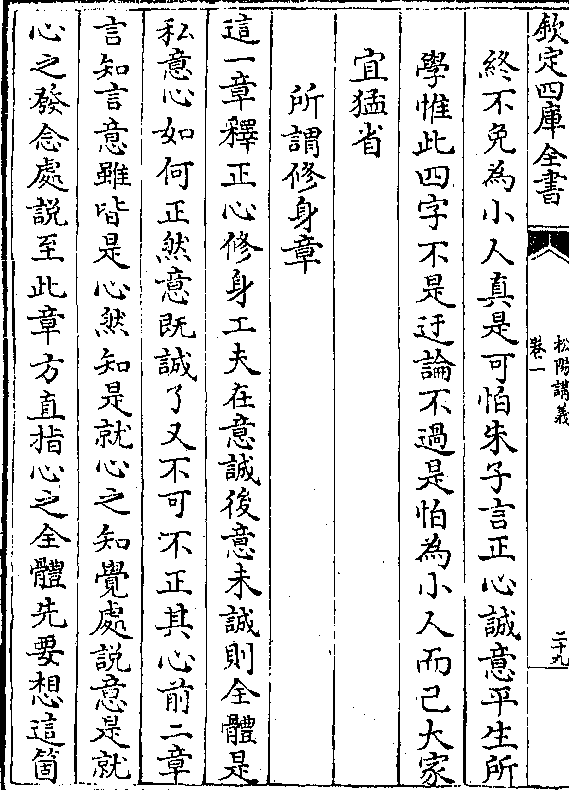 欽定四庫全書
松陽講義
卷一
二十九
終不免為小人真是可怕朱子言正心誠意平生所
學惟此四字不是迂論不過是怕為小人而已大家
宜猛省
所謂修身章
這一章釋正心修身工夫在意誠後意未誠則全體是
私意心如何正然意既誠了又不可不正其心前二章
言知言意雖皆是心然知是就心之知覺處說意是就
心之發念處說至此章方直指心之全體先要想這箇